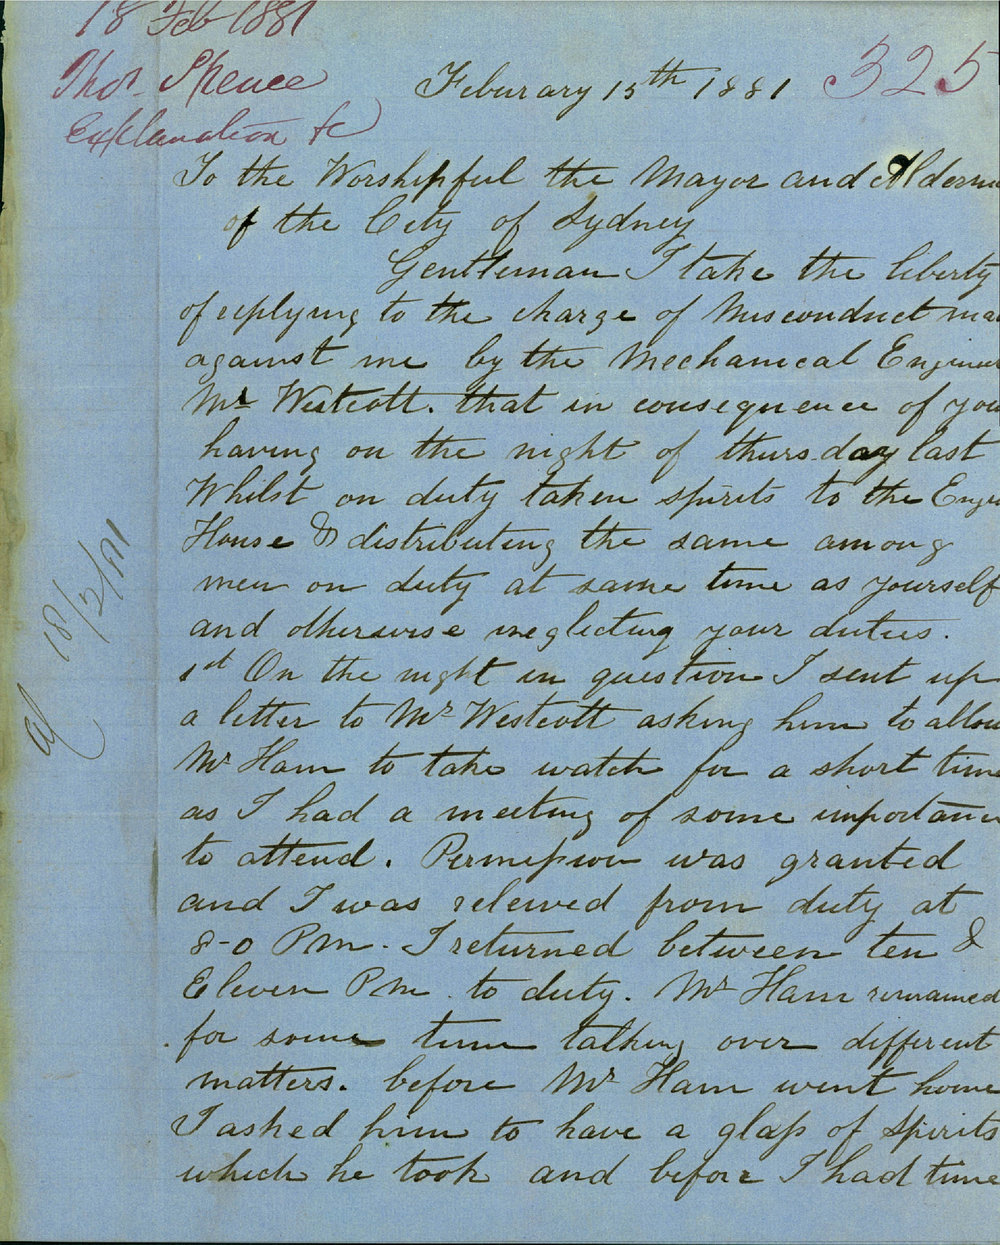 18 Feb 1881
Thos. Spence
Explanation &c
Feburary 15th 1881
325
To the Worshipful the Mayor and Alderme
of the City of Sydney
Gentleman I take the liberty
of replying to the charge of Misconduct ma
against me by the Mechanical Engineer
Mr Westcott. that in consequence of you
having on the night of thursday last
Whilst on duty taken spirits to the Engi
House & distributing the same among
men on duty at same time as yourself
and otherwise neglecting your duties.
1st On the night in question I sent up
a letter to Mr Westcott asking him to allow
Mr Ham to take watch for a short time
as I had a meeting of some importance
to attend. Permission was granted
and I was releived from duty at
8-0 PM. I returned between ten &
Eleven PM. to duty. Mr Ham remained
for some time talking over different
matters. before Mr Ham went home
I asked him to have a glass of spirits
which he took and before I had time
18/2/81